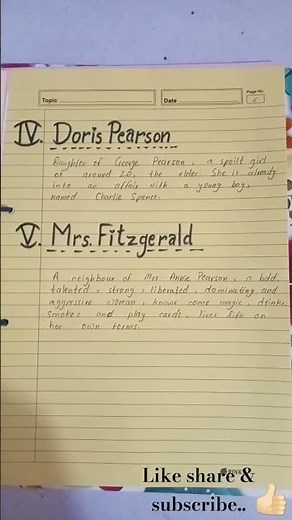 Topic
Date
Page No.
IV. Doris Pearson
Daughter of George Pearson, a spoilt girl
of around 20, the elder. She is already
into an affair with a young boy,
named Charlie Spence.
V. Mrs. Fitzgerald
A neighbour of Mrs Annie Pearson, a bold,
talented, strong, liberated, dominating and
aggressive woman, knows some magic, drinks,
smokes and play cards, lives life on
her own terms.
Like share &
subscribe.. 👍🏻